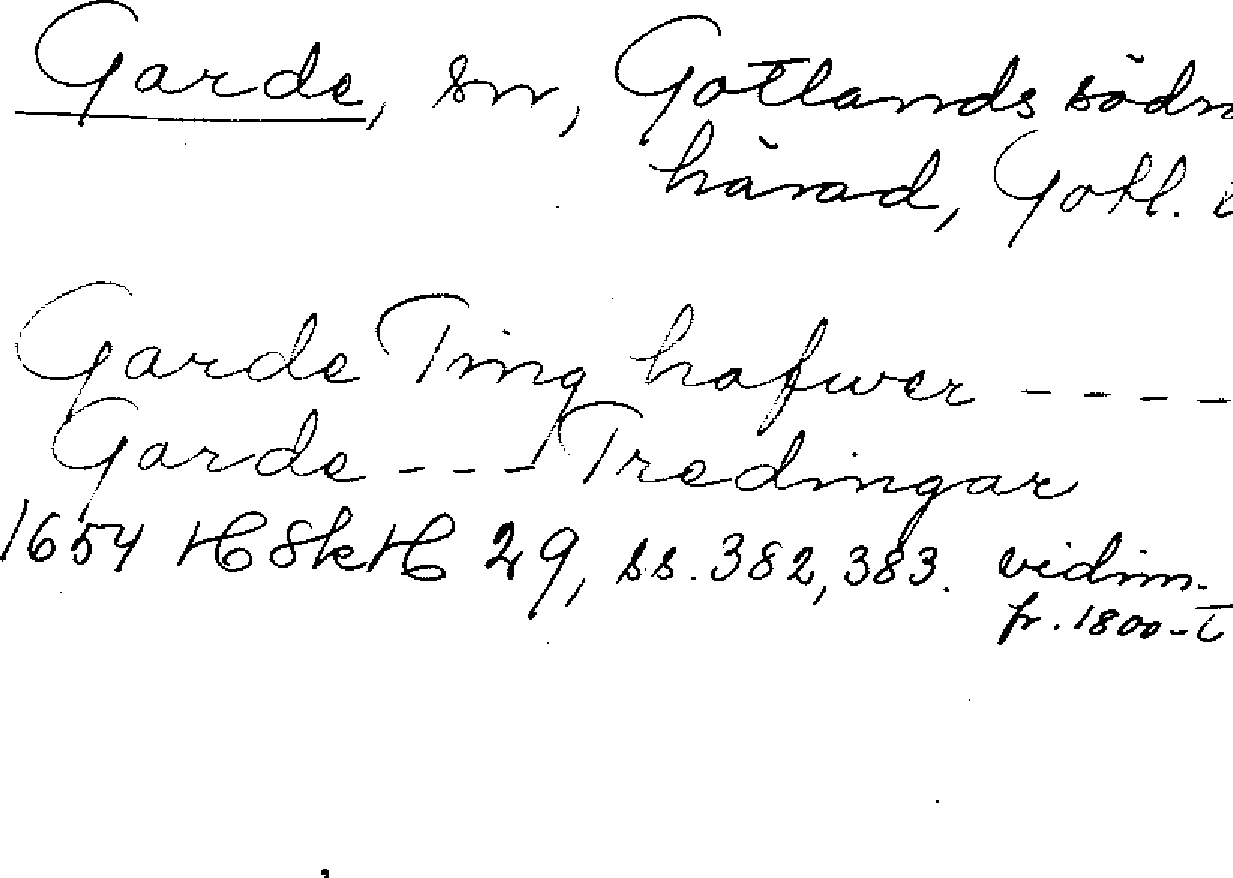 Garde, sn, Gotlands södr
härad, Gotl. l
Garde Ting hafwer ----
Garde --- Tredingar
1654 HSkH 29, ss. 382, 383. vidim.
fr. 1800-t